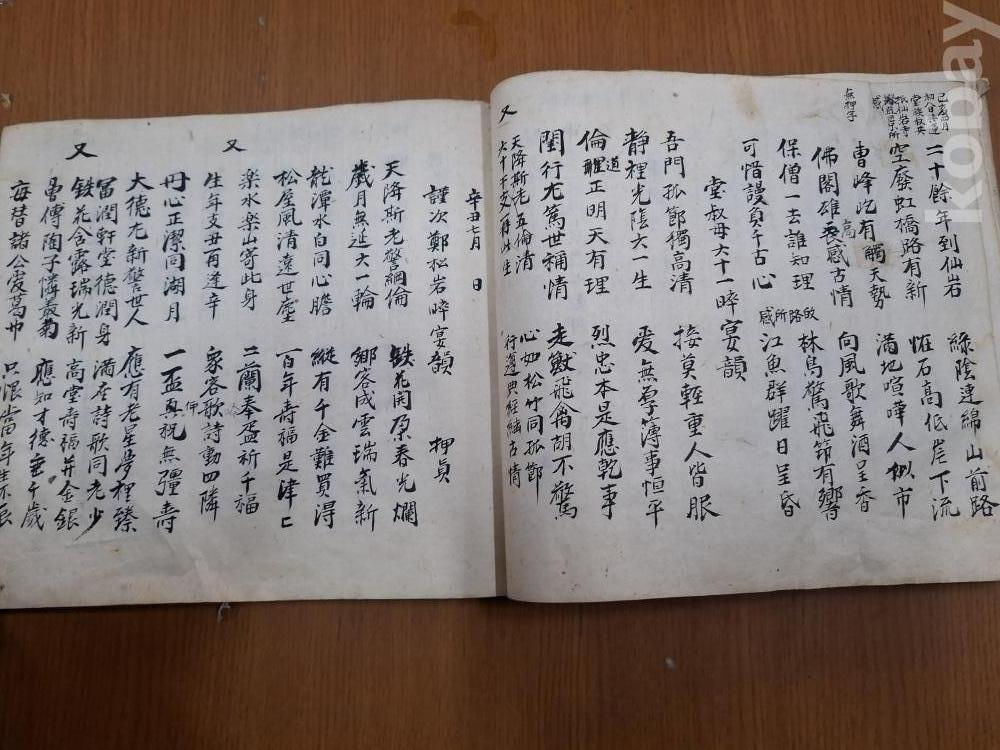 己亥四月
抵仙岩寺
感
無押字
二十餘年到仙岩 綠陰連綿山前路
空廢虹橋路有新 恠石高低岸下流
曹峰屹有觸天勢 滿地喧嘩人似市
佛閣雄 感古情 向風歌舞酒呈香
保僧一去誰知理 林鳥驚飛節有響
可惜謾負千古心 江魚群躍日呈昏
路所感
堂叔母六十一晬宴韻
吾門孤節獨高清 接莫輕重人皆服
靜裡光陰六一生 愛無厚薄事恒平
倫道正明天有理 烈忠本是應乾事
閨行尤篤世稱情 走獸飛禽胡不驚
又
天降斯老五倫清 心如松竹同孤節
六十干支再 生 行遵典經 古情
辛丑七月 日
謹次鄭松岩晬宴韻 押貞
天降斯老警綱倫 鉄花開處春光爛
歲月無延六一輪 鄉客成雲瑞氣新
龍潭水白同心膽 縱有千金難買得
松屋風清遠世塵 百年壽福是津匕
又
樂水樂山寄此身 二蘭奉盃祈千福
生年支丑再逢辛 衆客歌詩動四隣
丹心正潔同湖月 一盃再祝無彊壽
大德尤新警世人 應有老星夢裡臻
又
富潤軒堂德潤身 滿在詩歌同老少
鉄花含露瑞光新 高堂壽福并金銀
曹傳陶子憐叢菊 應知才德垂千歲
每替諸公愛葛巾 只恨當年生不辰